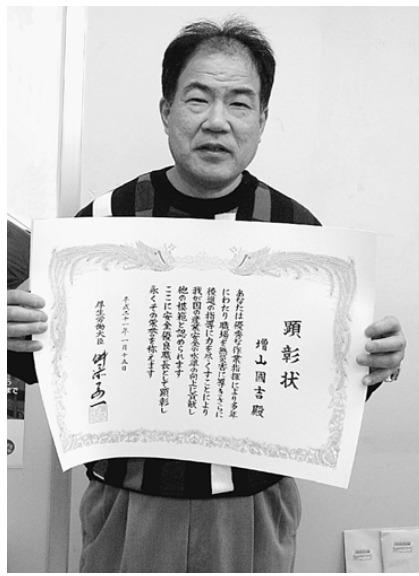 顕彰状
増山國吉殿
あなたは優秀な作業指揮により多年
にわたり職場を無災害に導きさらに
後進の指導に力を尽くすことにより
我が国の産業安全の水準の向上に貢献し
他の模範と認められます
ここに安全優良職長として顕彰し
永くその栄誉を称えます
平成二十一年一月十五日
厚生労働大臣